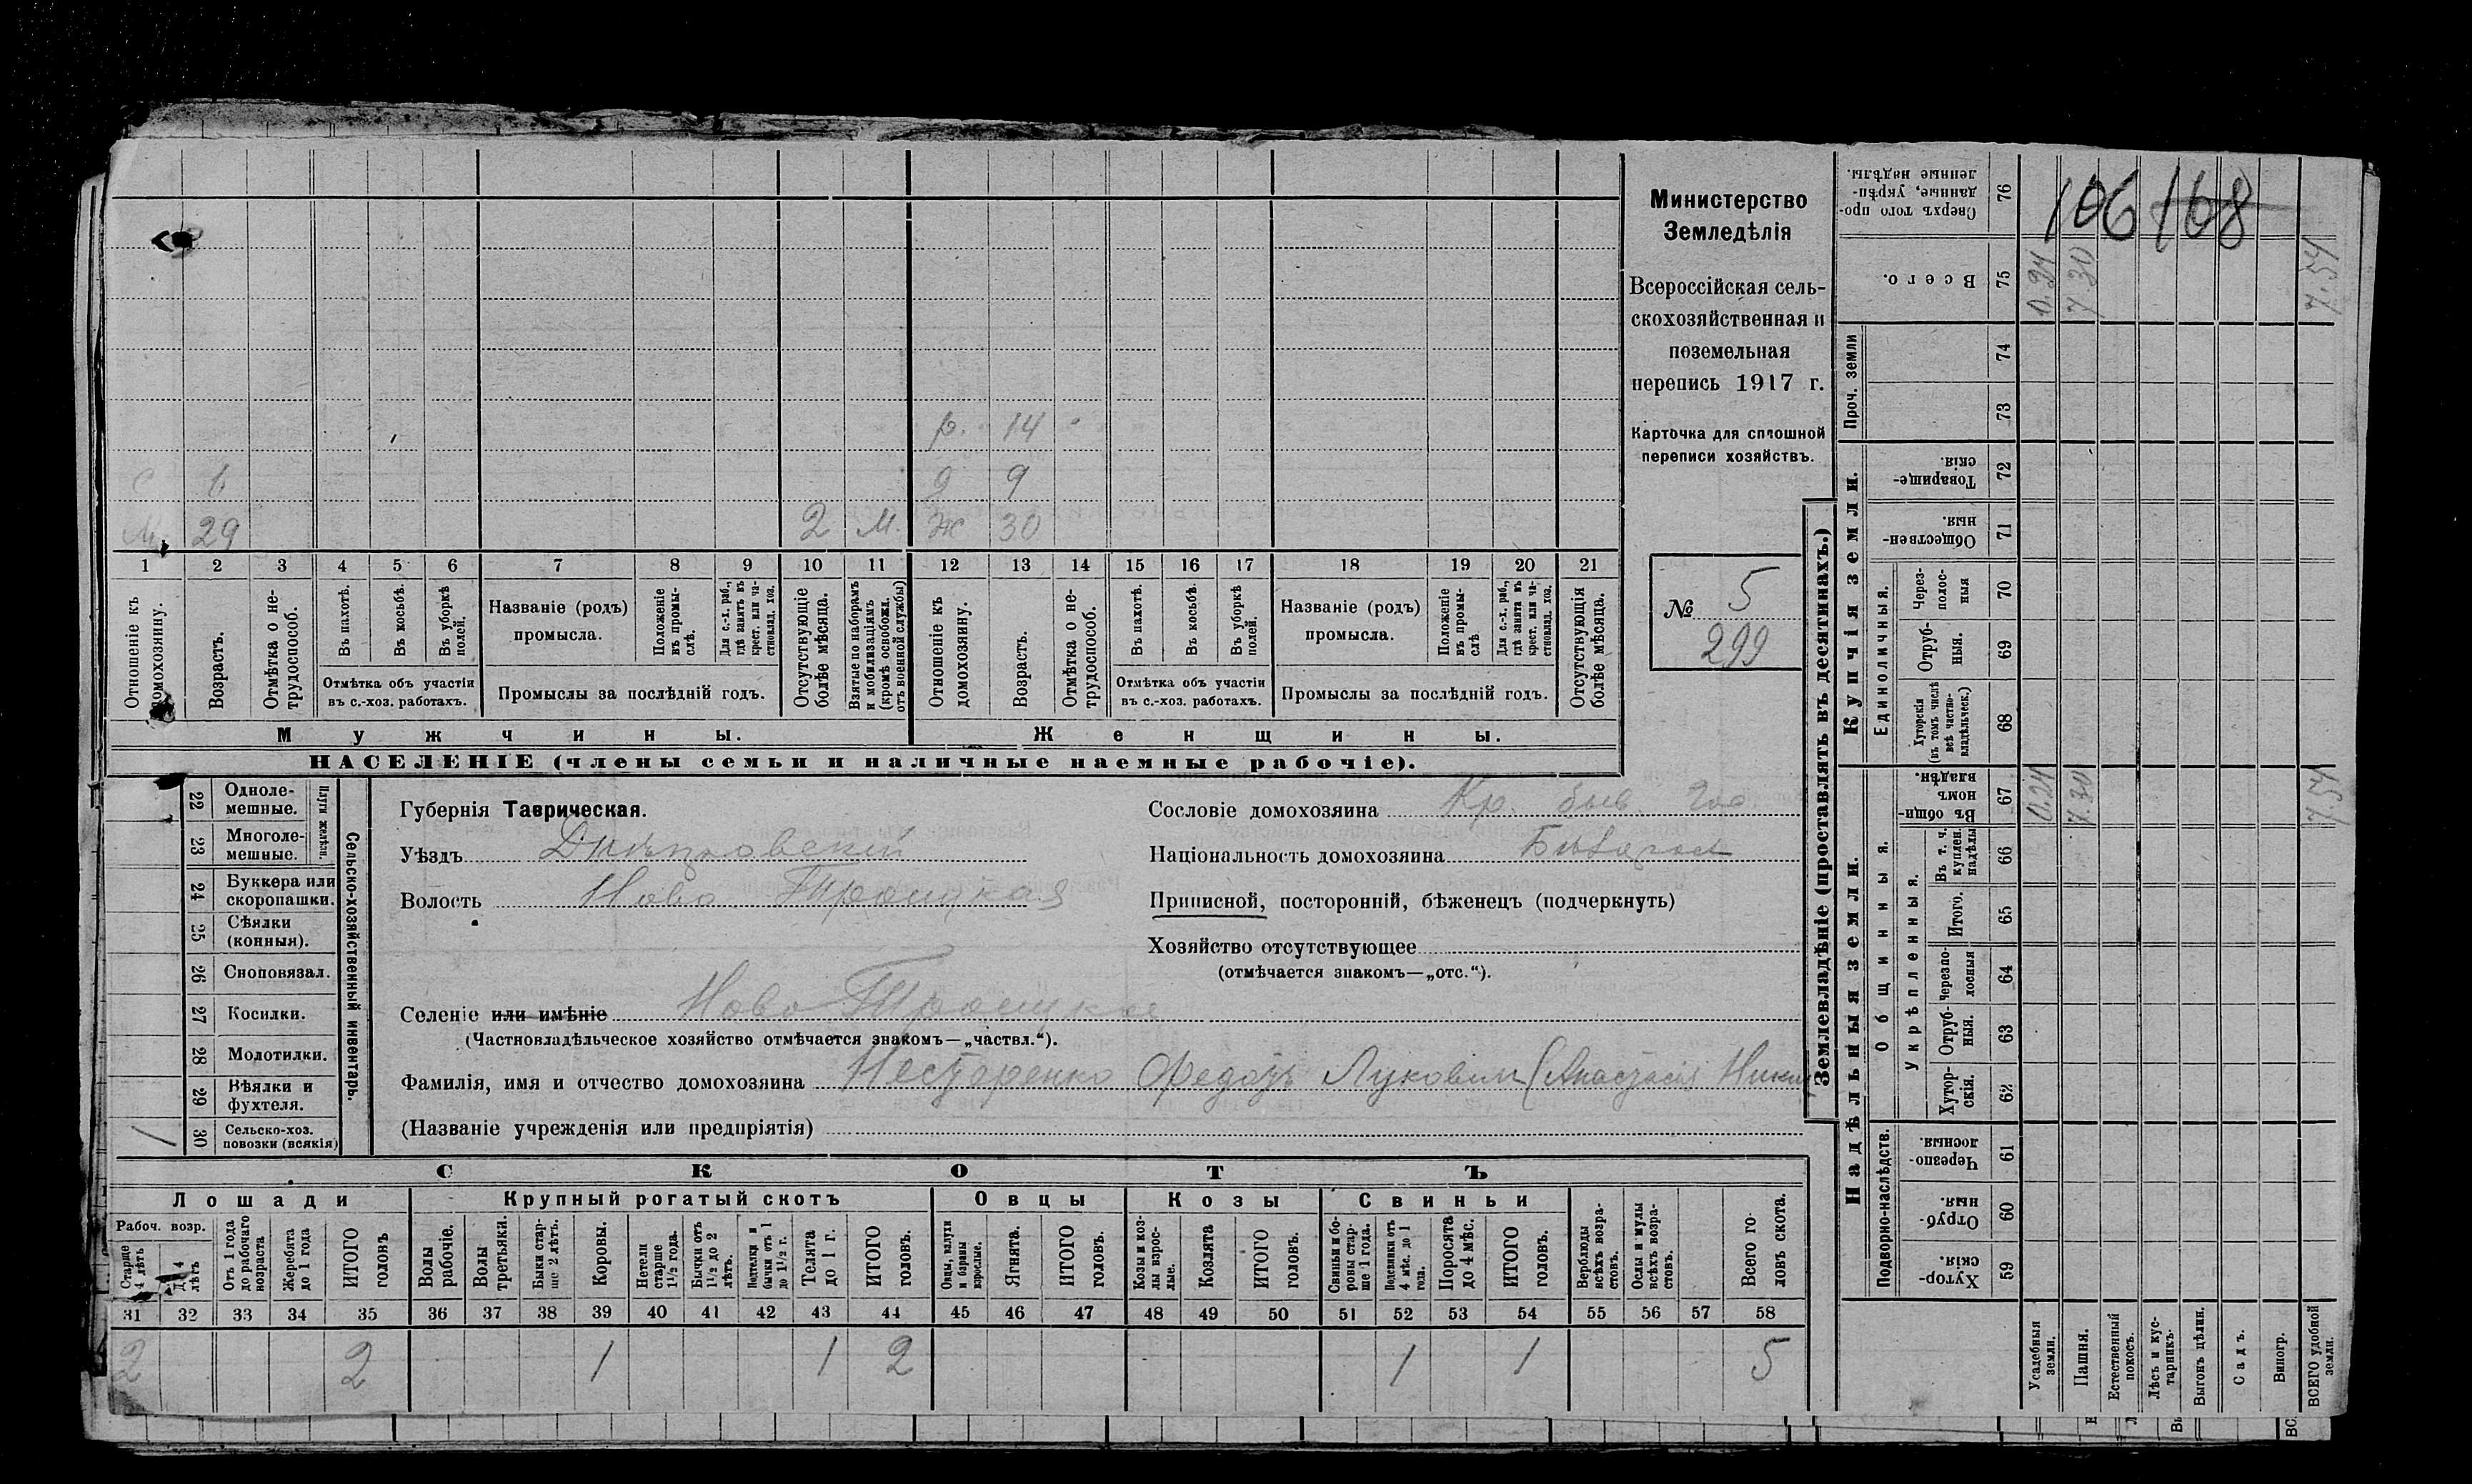 р. 14
с 6 д 9
М. 29 2 М. Ж 30
1 2 3 4 5 6 7 8 9 10 11 12 13 14 15 16 17 18 19 20 21
Отношеніе къ домохозяину.
Возрастъ.
Отмѣтка о не-
трудоспособ.
Въ пахотѣ.
Въ косьбѣ.
Въ уборкѣ
полей.
Отмѣтка объ участіи
въ с.-хоз. работахъ.
Названіе (родъ)
промысла.
Положеніе
въ промы-
слѣ.
Для с.-х. раб.,
гдѣ занятъ въ
крест. или ча-
стновлад. хоз.
Промыслы за послѣдній годъ.
Отсутствующіе
болѣе мѣсяца.
Взятые по наборамъ
и мобилизаціямъ
(кромѣ освобожд.
отъ военной службы)
Отношеніе къ
домохозяину.
Возрастъ.
Отмѣтка о не-
трудоспособ.
Въ пахотѣ.
Въ косьбѣ.
Въ уборкѣ
полей.
Отмѣтка объ участіи
въ с.-хоз. работахъ.
Названіе (родъ)
промысла.
Положеніе
въ промы-
слѣ
Для с.-х. раб.,
гдѣ занята въ
крест. или ча-
стновлад. хоз.
Промыслы за послѣдній годъ.
Отсутствующія
болѣе мѣсяца.
Мужчины.
Женщины.
НАСЕЛЕНІЕ (члены семьи и наличные наемные рабочіе).
Министерство
Земледѣлія
Всероссійская сель-
скохозяйственная и
поземельная
перепись 1917 г.
Карточка для сплошной
переписи хозяйствъ.
№ 5
299
22 Одноле-
мешные.
23 Многоле-
мешные.
Плуги желѣзн.
24 Буккера или
скоропашки.
25 Сѣялки
(конныя).
26 Сноповязал.
27 Косилки.
28 Молотилки.
29 Вѣялки и
фухтеля.
1 30 Сельско-хоз.
повозки (всякія)
Сельско-хозяйственный инвентарь.
Губернія Таврическая.
Уѣздъ Днѣпровскій
Волость Ново Троицкая
Селеніе или имѣніе Ново Троицкое
(Частновладѣльческое хозяйство отмѣчается знакомъ—„частвл.“).
Фамилія, имя и отчество домохозяина Нестеренко Федотъ Луковичъ (Анастасія
(Названіе учрежденія или предпріятія)
Сословіе домохозяина Кр. быв. гос
Національность домохозяина
Приписной, посторонній, бѣженецъ (подчеркнуть)
Хозяйство отсутствующее
(отмѣчается знакомъ—„отс.“).
СКОТЪ
Лошади
Крупный рогатый скотъ
Овцы
Козы
Свиньи
Рабоч. возр.
Старше
4 лѣтъ
До 4
лѣтъ
Отъ 1 года
до рабочаго
возраста
Жеребята
до 1 года
ИТОГО
головъ
Волы
рабочіе.
Волы
третьяки.
Быки стар-
ше 2 лѣтъ.
Коровы.
Нетели
старше
1½ года.
Бычки отъ
1½ до 2
лѣтъ.
Подтелки и
бычки отъ 1
до 1½ г.
Телята
до 1 г.
ИТОГО
головъ.
Овцы, валухи
и бараны
взрослые.
Ягнята.
ИТОГО
головъ.
Козы и коз-
лы взрос-
лые.
Козлята
ИТОГО
головъ.
Свиньи и бо-
ровы стар-
ше 1 года.
Подсвинки отъ
4 мѣс. до 1
года.
Поросята
до 4 мѣс.
ИТОГО
головъ.
Верблюды
всѣхъ возра-
стовъ.
Ослы и мулы
всѣхъ возра-
стовъ.
Всего го-
ловъ скота.
31 32 33 34 35 36 37 38 39 40 41 42 43 44 45 46 47 48 49 50 51 52 53 54 55 56 57 58
2 2 1 1 2 1 1 5
Землевладѣніе (проставлять въ десятинахъ.)
106 168
Сверхъ того про-
данные, укрѣп-
ленные надѣлы. 76
Всего. 75 0.24 7.30 7.54
74
73
Проч. земли
Товарище-
скія. 72
Обществен-
ныя. 71
Через-
полос-
ныя 70
Отруб-
ныя. 69
Хуторскія
(въ томъ числѣ
всѣ частно-
владѣльческ.) 68
Единоличныя.
Купчія земли.
Въ общи-
номъ
владѣн. 67 0.24 7.30 7.54
Въ т. ч.
куплен.
надѣлы 66
Итого. 65
Черезпо-
лосныя 64
Отруб-
ныя. 63
Хутор-
скія. 62
Укрѣпленныя.
Общинныя.
Черезпо-
лосныя. 61
Отруб-
ныя. 60
Хутор-
скія. 59
Подворно-наслѣдств.
Надѣльныя земли.
Усадебныя
земли.
Пашня.
Естественный
покосъ.
Лѣсъ и кус-
тарникъ.
Выгонъ цѣлин.
Садъ.
Виногр.
ВСЕГО удобной
земли.